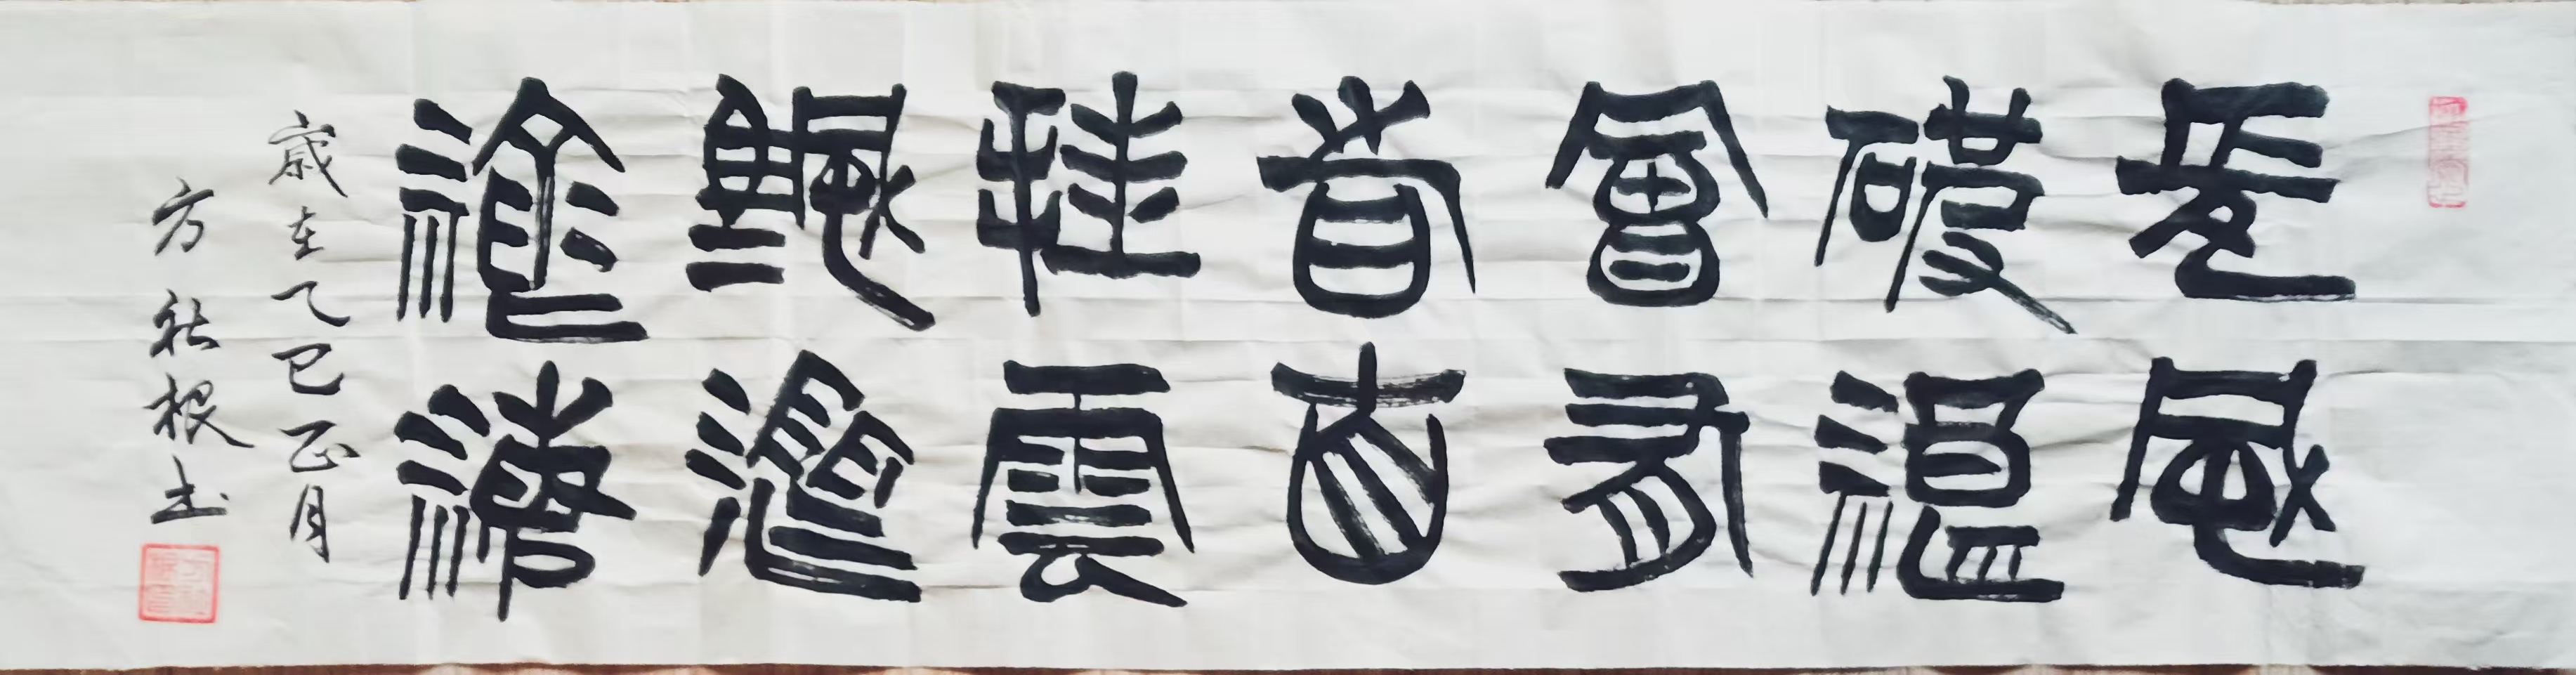 長風
破浪
會有
時直
挂雲
帆濟
滄海
歲在乙巳正月
方秋根书